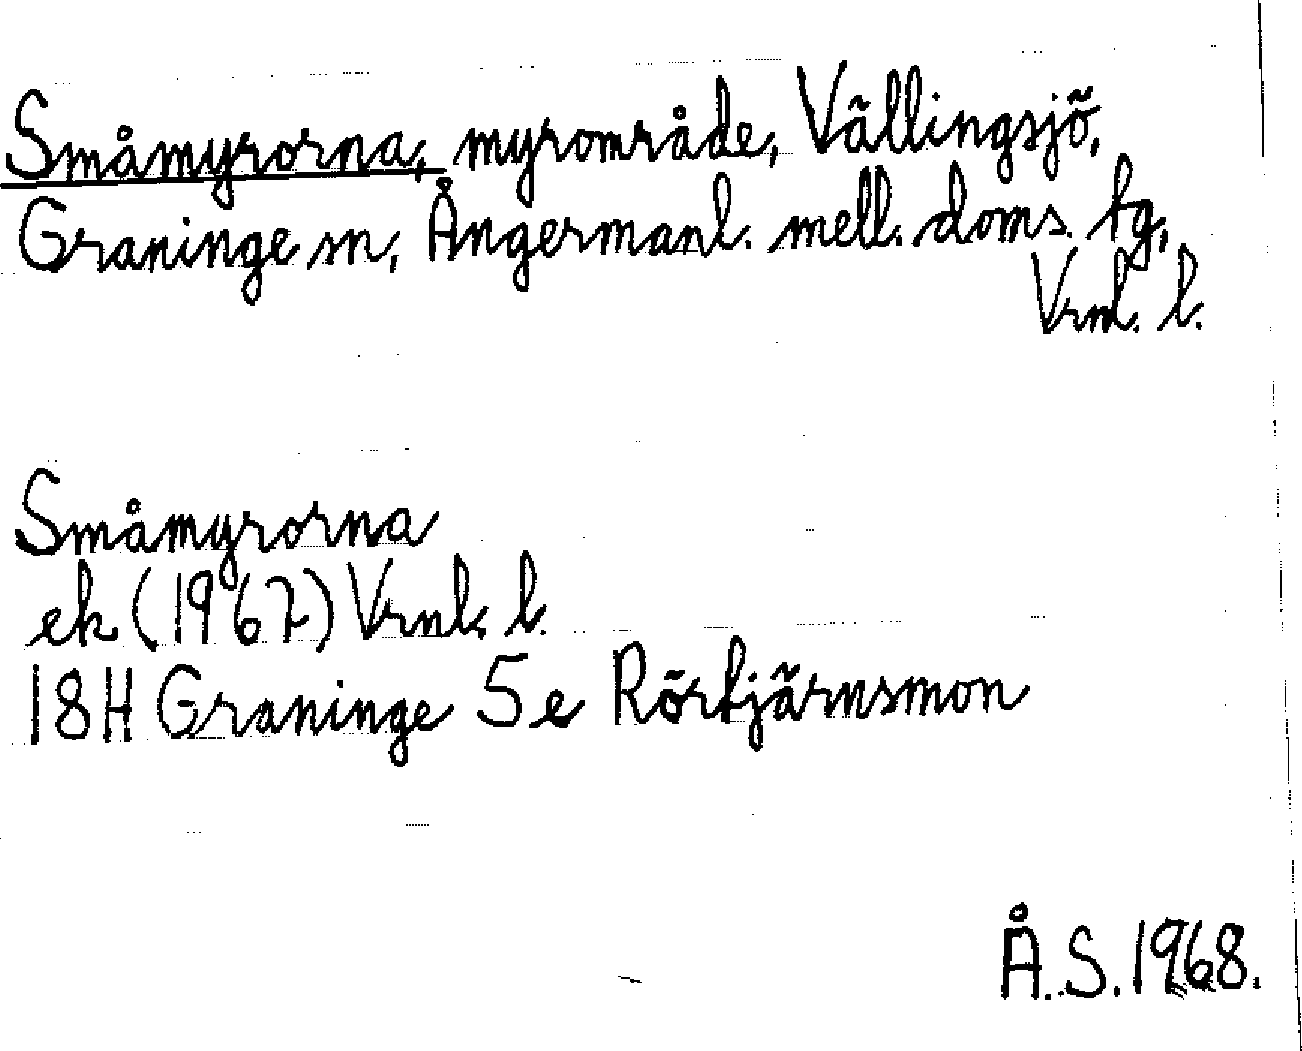 Småmyrorna, myrområde, Vällingsjö,
Graninge sn, Ångermanl. mell. doms. tg,
Vrnl. l.
Småmyrorna
ek (1967) Vrnl. l.
18H Graninge 5e Rörtjärnsmon
Å.S. 1968.